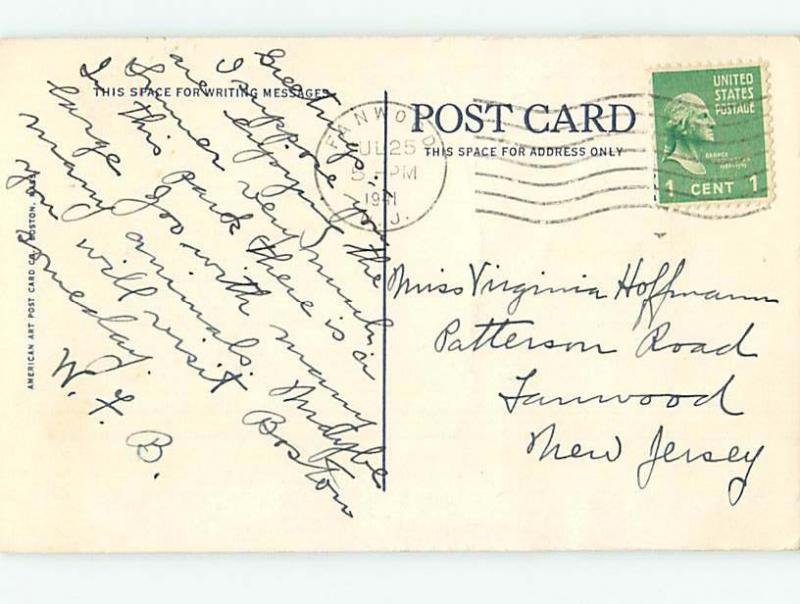 THIS SPACE FOR WRITING MESSAGES
Greetings,
I suppose you
are enjoying the
summer very much.
In this park there is a
large zoo with many
many animals. Maybe
you will visit Boston
someday.
W. F. B.
AMERICAN ART POST CARD CO., BOSTON, MASS.
FANWOOD
JUL 25
5 - PM
1941
N.J.
POST CARD
THIS SPACE FOR ADDRESS ONLY
UNITED
STATES
POSTAGE
GEORGE
WASHINGTON
1 CENT 1
Miss Virginia Hoffmann
Patterson Road
Fanwood
New Jersey